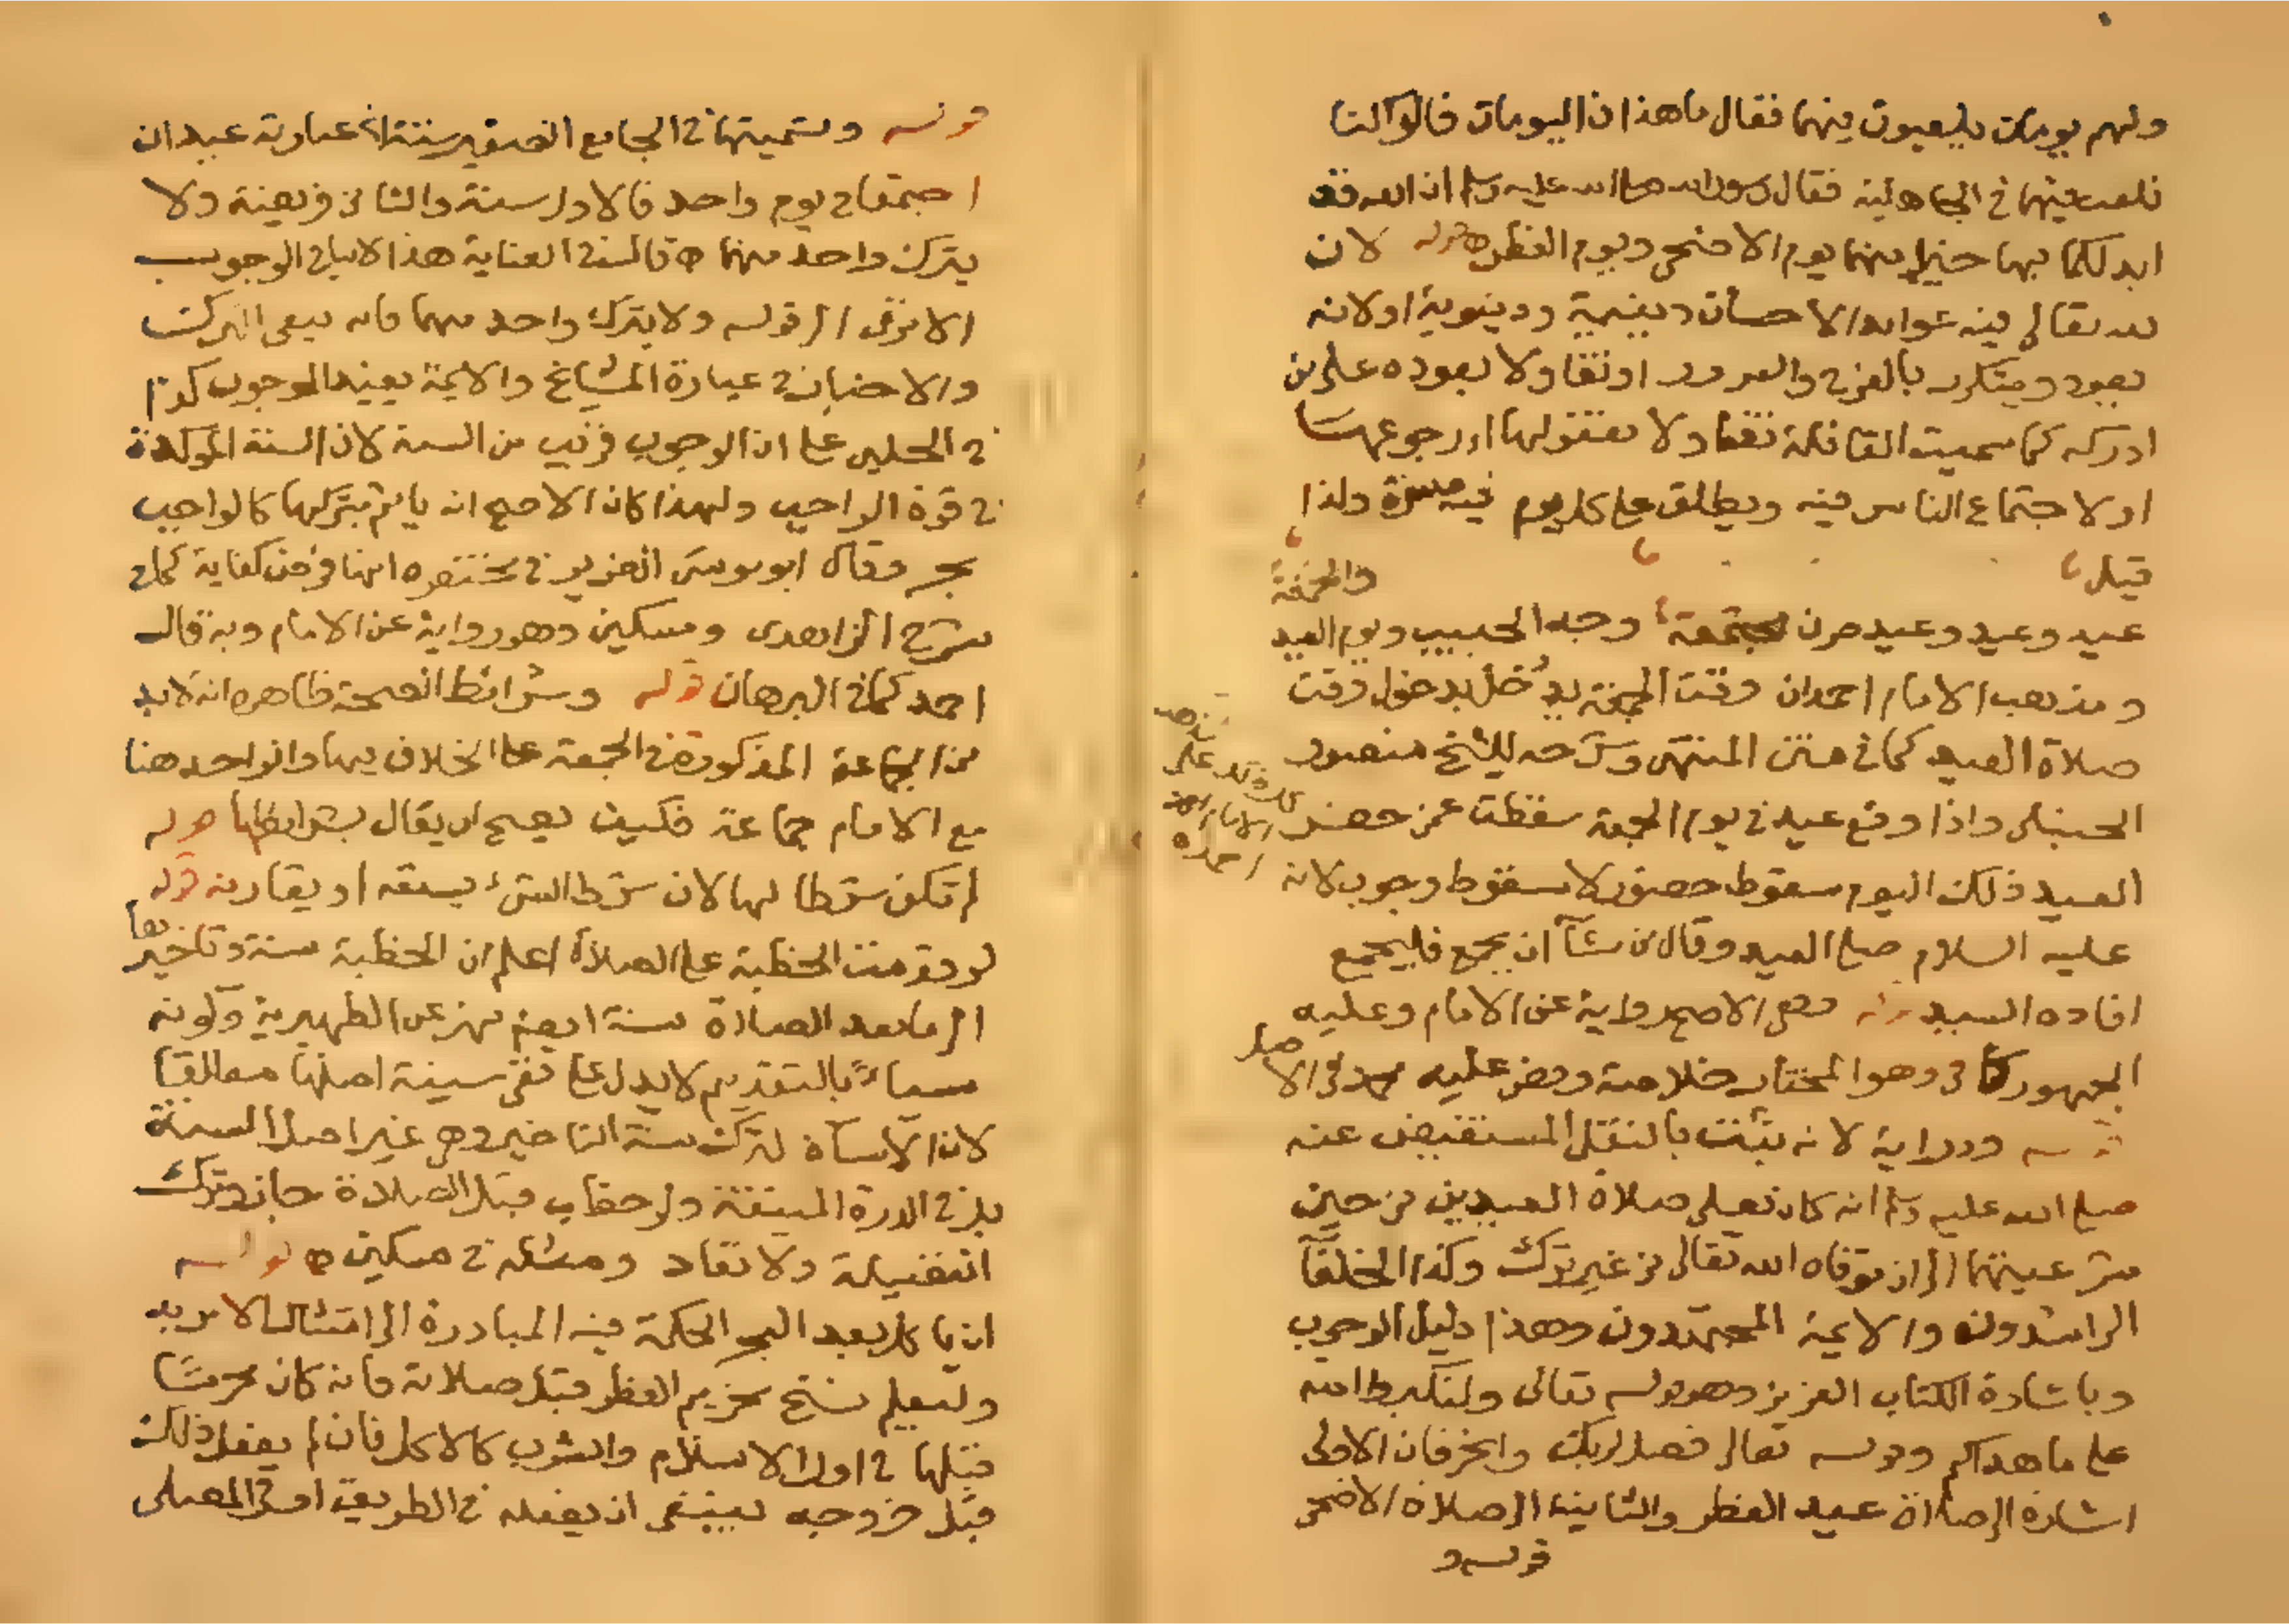 ولهم يومان يلعبون فيهما فقال ما هذان اليومان قالوا كنا
نلعب فيهما في الجاهلية فقال رسول الله صلى الله عليه وسلم ان الله قد
ابدلكما بهما خيرا منهما يوم الاضحى ويوم الفطر ه قوله لان
لله تعالى فيه عوائد الاحسان دينية ودنيوية او لانه
يعود ويتكرر بالفرح والسرور او تفاولا بعوده على من
ادركه كما سميت القافلة تفاولا بقفولها اي رجوعها
او لاجتماع الناس فيه ويطلق على كل يوم فيه مسرة ولذا
قيل
عيد وعيد وعيد صرن مجتمعة وجه الحبيب ويوم العيد والجمعة
ومذهب الامام احمد ان وقت الجمعة يدخل بدخول وقت
صلاة العيد كما في متن المنتهى وشرحه للشيخ منصور
الحنبلي واذا وقع عيد في يوم الجمعة سقطت عمن حضر
العيد ذلك اليوم سقوط حضور لا سقوط وجوب لانه
عليه السلام صلى العيد وقال من شآ ان يجمع فليجمع
افاده السيد قوله وهي الاصح رواية عن الامام وعليه
الجمهور كما في وهو المختار خلاصة ونص عليه محمد في الاصل
قوله ودراية لانه ثبت بالنقل المستفيض عنه
صلى الله عليه وسلم انه كان يصلي صلاة العيدين من حين
شرعيتهما الى ان توفاه الله تعالى من غير ترك وكذا الخلفآ
الراشدون والايمة المجتهدون وهذا دليل الوجوب
وباشارة الكتاب العزيز وهو قوله تعالى ولتكبروا الله
على ما هداكم وقوله تعالى فصل لربك وانحر فان الاولى
اشارة الى صلاة عيد الفطر والثانية الى صلاة الاضحى
قوله و
قوله وتسميتها في الجامع الصغير سنة عبارته عيدان
اجتمعا في يوم واحد فالاول سنة والثاني فريضة ولا
يترك واحد منهما ه قال في العناية هذا لا ينافي الوجوب
الا ترى الى قوله ولا يترك واحد منهما فانه ينفي الترك
والاخبار في عبارة المشايخ والايمة يفيد الوجوب كذا
في الحلبي على ان الوجوب قريب من السنة لان السنة المؤكدة
في قوة الواجب ولهذا كان الاصح انه ياثم بتركها كالواجب
بحر وقال ابو موسى الضرير في مختصره انها فرض كفاية كما في
شرح الزاهدي ومسكين وهو رواية عن الامام وبه قال
احمد كما في البرهان قوله وشرائط الصحة ظاهره انه لا بد
من الجماعة المذكورة في الجمعة على الخلاف فيها والواحد هنا
مع الامام جماعة فكيف يصح ان يقال بشرائطها قوله
لم تكن شرطا لها لان شرط الشيء يسبقه او يقارنه قوله
لو قدمت الخطبة على الصلاة اعلم ان الخطبة سنة وتاخيرها
الى ما بعد الصلاة سنة ايضا نهر عن الظهيرية وكونه
مسيأ بالتقديم لا يدل على نفي سنية اصلها مطلقا
لان الاسآة لترك سنة التاخير وهي غير اصل السنة
بل في الدرة المنيفة ولو خطب قبل الصلاة جاز وترك
الفضيلة ولا تعاد ومثله في مسكين ه قوله
ان ياكل بعد الفجر الحكمة فيه المبادرة الى امتثال الامر به
وليعلم نسخ تحريم الفطر قبل صلاته فانه كان محرما
قبلها في اول الاسلام والشرب كالاكل فان لم يفعل ذلك
قبل خروجه فينبغي ان يفعله في الطريق او في المصلى